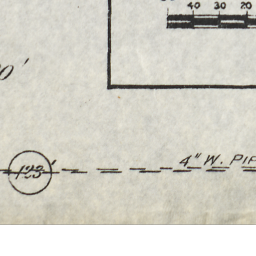 40 30 20
0'
123'
4" W. PIP